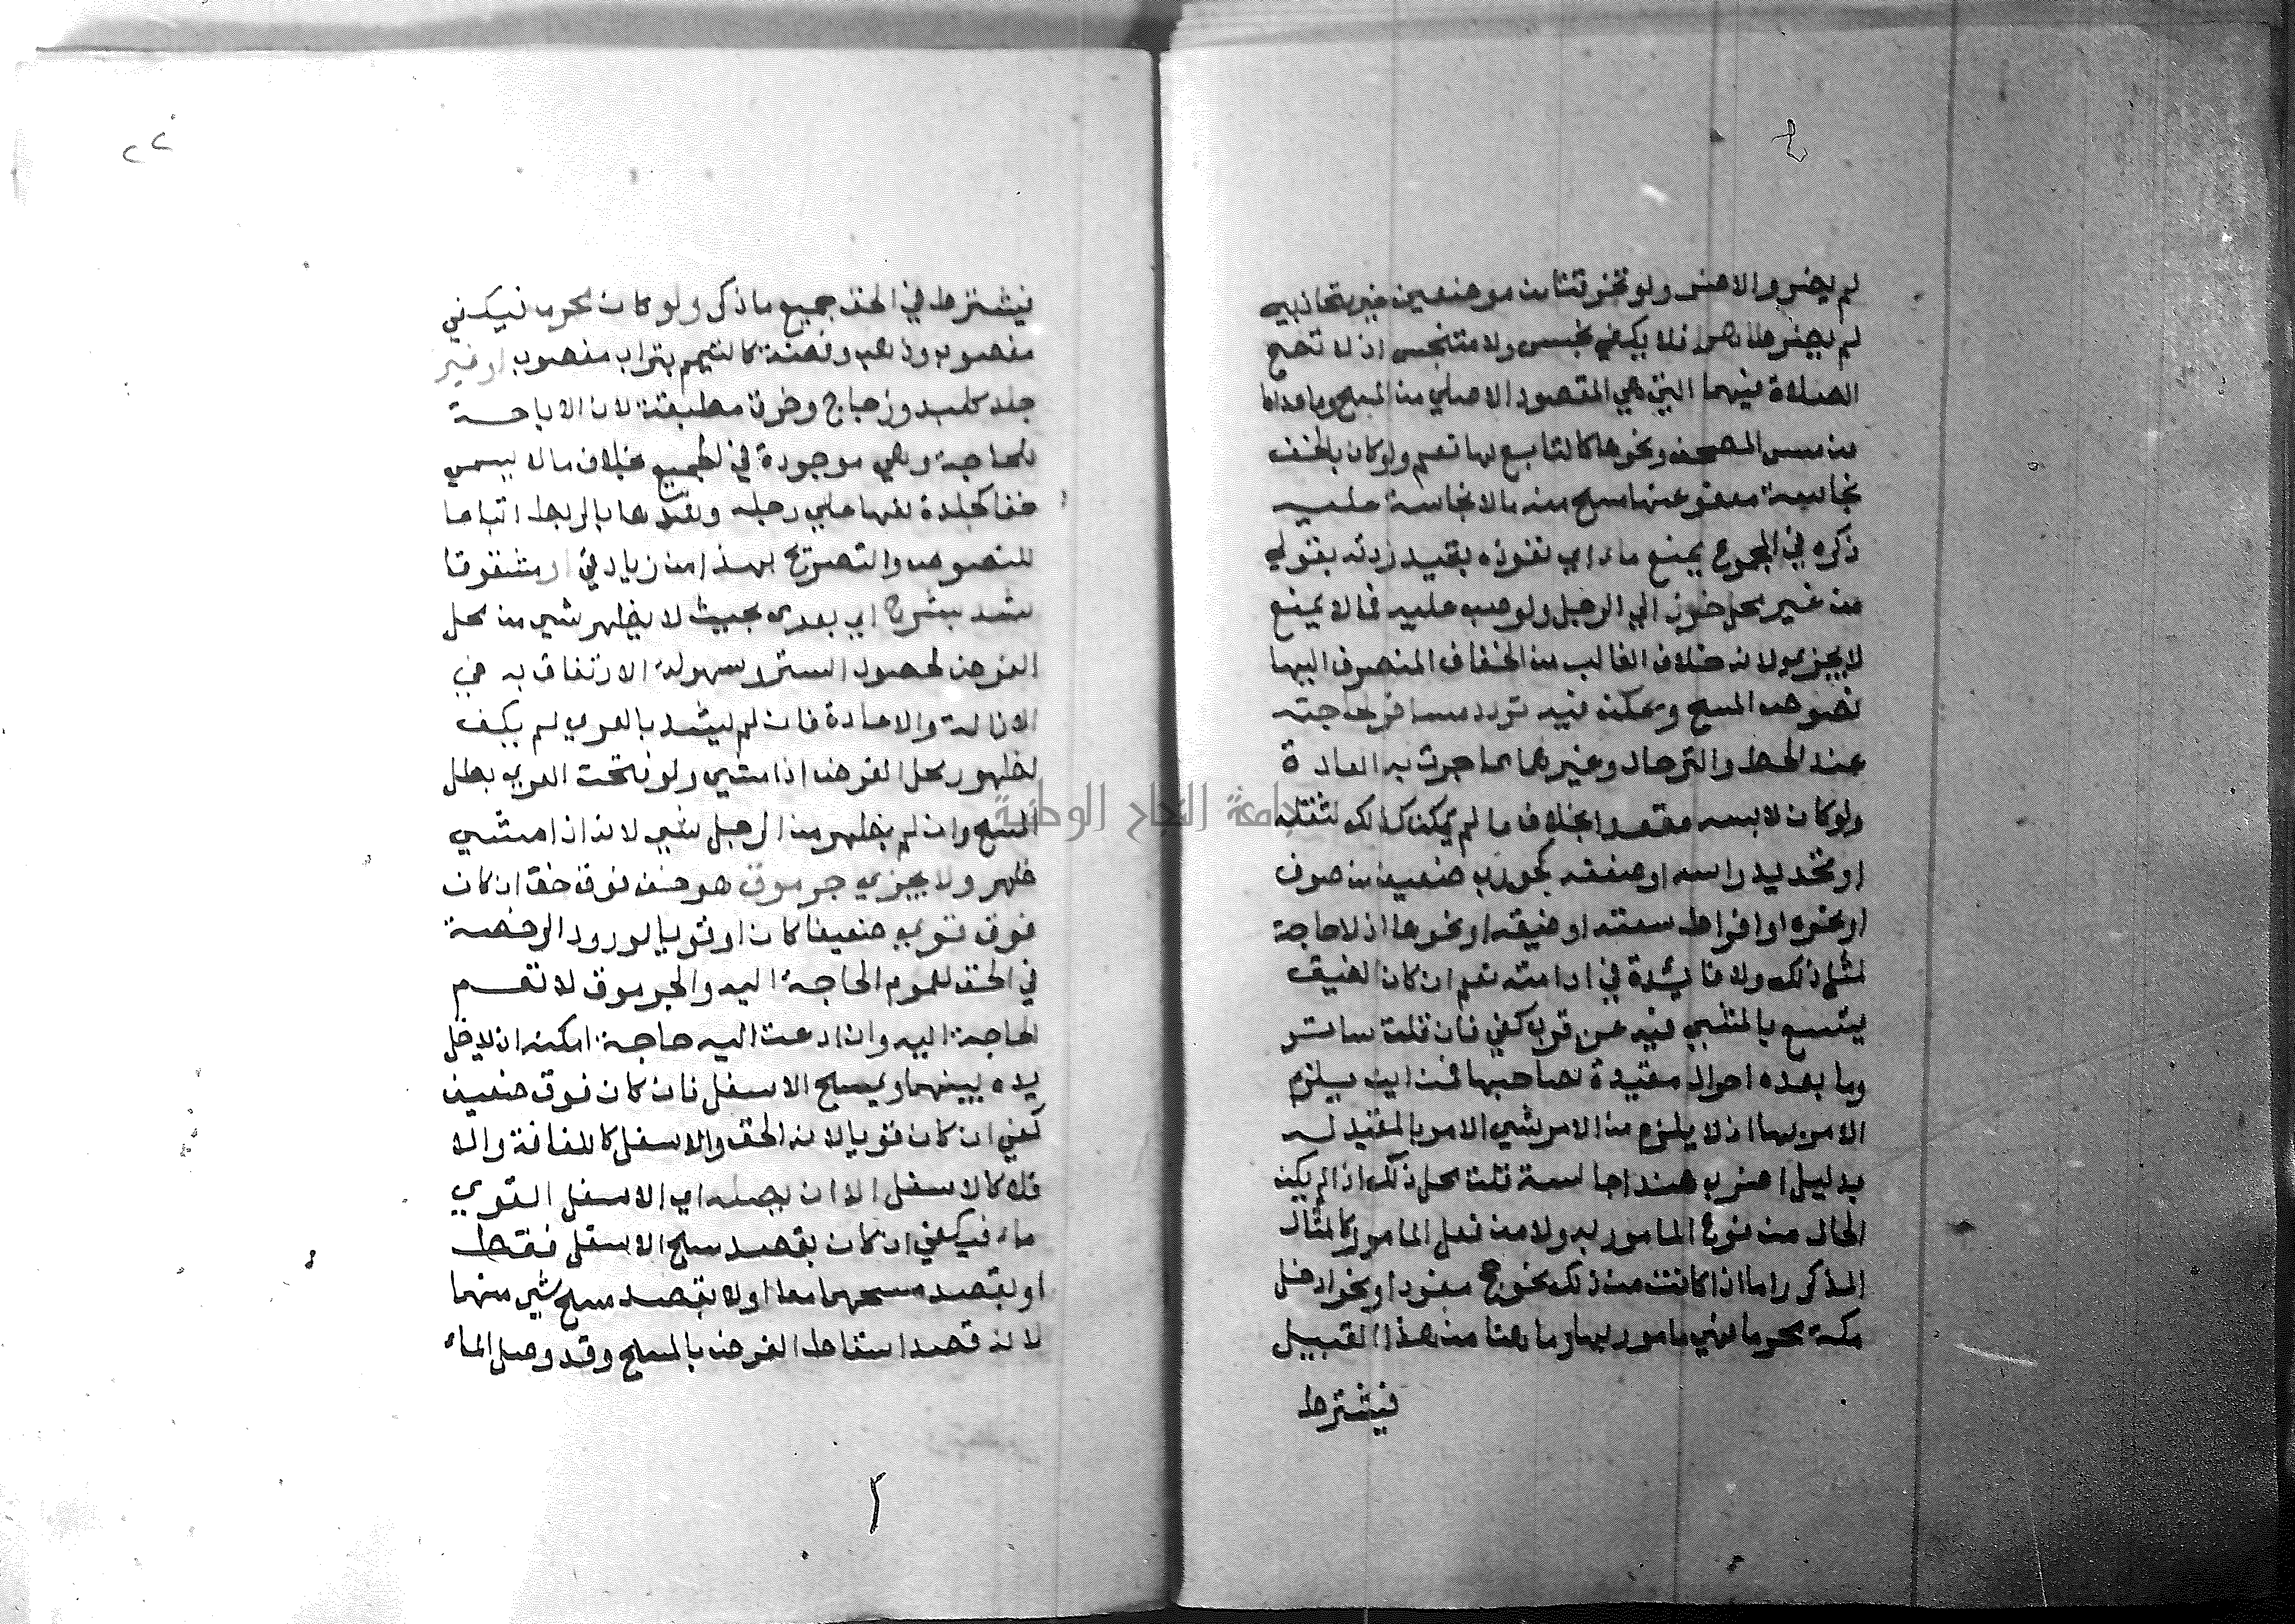 لم يضر والا ضر ولو تخرقتا من موضعين غير متحاذيين
لم يضر طاهرا فلا يكفي نجس ولا متنجس اذ لا تصح
الصلاة فيهما التي هي المقصود الاصلي من المسح وما عداها
من مس المصحف ونحوها كالتابع لها نعم لو كان بالخف
نجاسة معفو عنها مسح منه مالا نجاسة عليه
ذكره في المجموع يمنع ماء اي نفوذه بقيد زدته بقولي
من غير محل خرز الي الرجل ولو صب عليه فمالا يمنع
لا يجزي لانه خلاف الغالب من الخفاف المنصرف اليها
نصوص المسح ويمكن فيه تردد مسافر لحاجته
عند الحط والترحال وغيرهما مما جرت به العادة
ولو كان لابسه مقعدا بخلاف ما لم يمكن كذلك لثقله
او تحديد راسه او ضعفه كجورب ضعيف من صوف
او نحوه او افراط سعته او ضيقه او نحوها اذ لا حاجة
لمثل ذلك ولا فائدة في ادامته نعم ان كان الضيق
يتسع بالمشي فيه عن قرب كفي فان قلت ساتر
وما بعده احوال مقيدة لصاحبها فمن اين يلزم
الامر بها اذ لا يلزم من الامر بشي الامر بالمقيد له
بدليل اضرب هندا جالسة قلت محل ذلك اذا لم يكن
الحال من نوع المامور به ولا من فعل المامور كالمثال
المذكور اما اذا كانت من ذلك نحو حج مفردا ونحو ادخل
مكة محرما فهي مامور بها وما هنا من هذا القبيل
فيشترط
فيشترط في الخف جميع ما ذكر ولو كان محرما فيكفي
مغصوب وذهب وفضة كالتيمم بتراب مغصوب او غير
جلد كلبد وزجاج وخرق مطبقة لان الاباحة
للحاجة وهي موجودة في الجميع بخلاف مالا يسمي
خفا كجلدة لفها علي رجله وشدها بالربط اتباعا
للنصوص والتصريح بهذا من زيادتي او مشقوقا
شد بشرج اي بعرى بحيث لا يظهر شي من محل
الفرض لحصول الستر وسهولة الارتفاق به في
الازالة والاعادة فان لم يشد بالعري لم يكف
لظهور محل الفرض اذا مشي ولو فتحت العري بطل
المسح وان لم يظهر من الرجل شي لانه اذا مشي
ظهر ولا يجزي جرموق هو خف فوق خف ان كان
فوق قوي ضعيفا كان او قويا لورود الرخصة
في الخف لعموم الحاجة اليه والجرموق لا تعم
الحاجة اليه وان دعت اليه حاجة امكنه ان يدخل
يده بينهما ويمسح الاسفل فان كان فوق ضعيف
كفي ان كان قويا لانه الخف والاسفل كاللفافة والا
فلا كالاسفل الا ان يصله اي الاسفل القوي
ماء فيكفي ان كان بقصد مسح الاسفل فقط
او بقصد مسحهما معا او لا بقصد مسح شي منهما
لانه قصد اسقاط الفرض بالمسح وقد وصل الماء
جامعة النجاح الوطنية